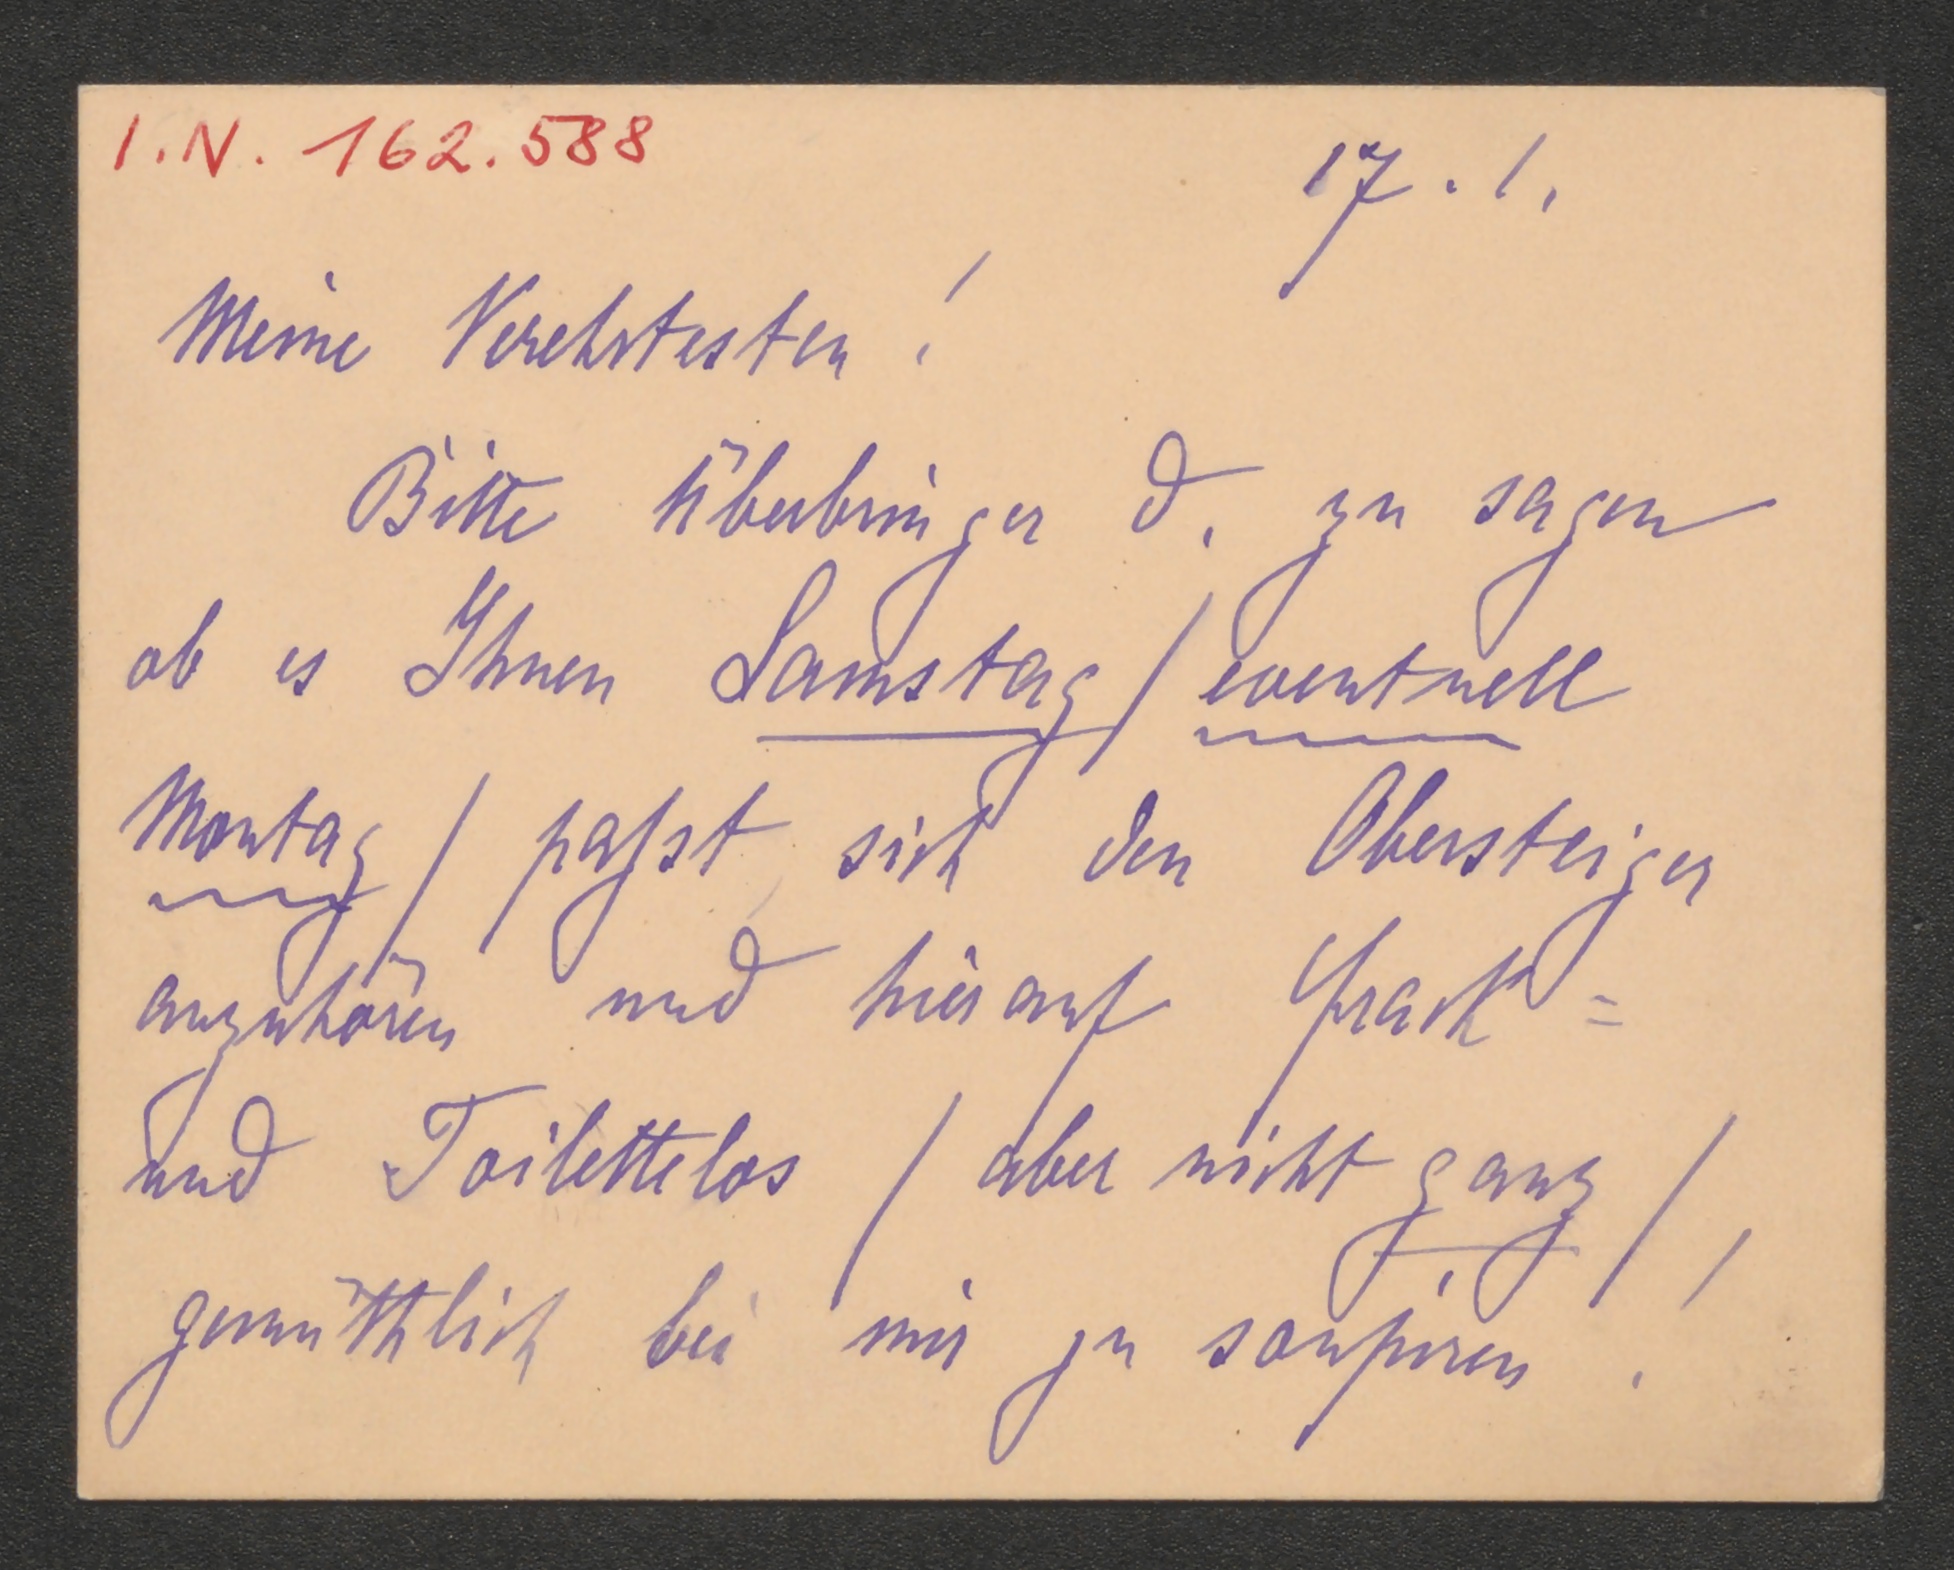 I.N. 162.588
17. 1.
Meine Verehrtesten!
Bitte Überbringer d. zu sagen
ob es Ihnen Samstag / eventuell
Montag / paßst sich den Obersteiger
anzuhören und hierauf Frack=
und Toilettelos / aber nicht ganz /,
gemüthlich bei mir zu soupiren!